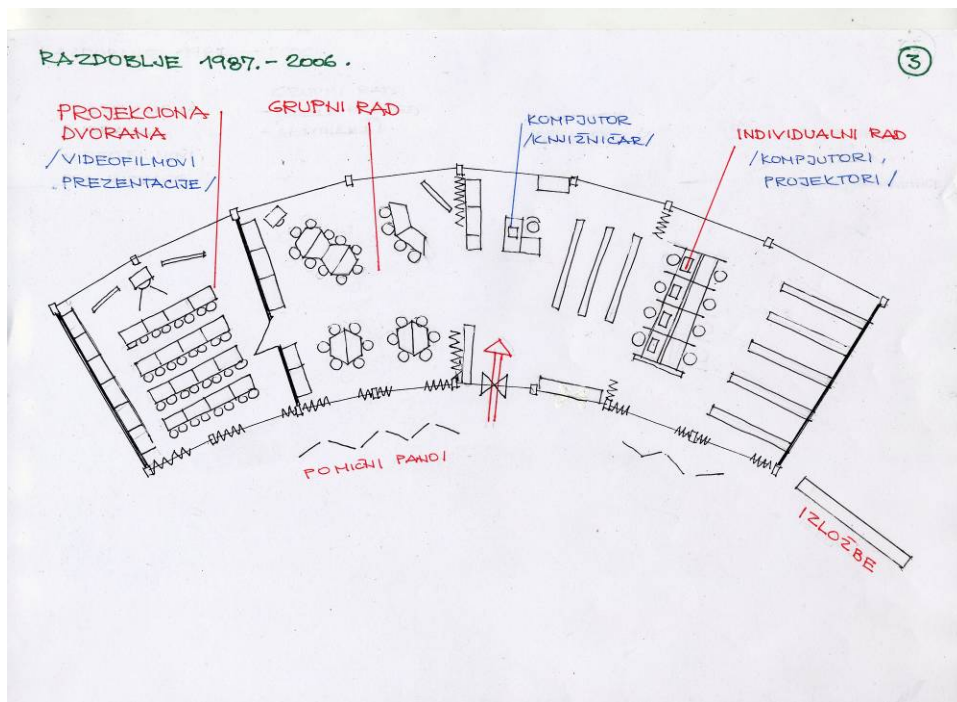 RAZDOBLJE 1987.-2006.
3
PROJEKCIONA
DVORANA
/VIDEOFILMOVI
PREZENTACIJE/
GRUPNI RAD
KOMPJUTOR
/KNJIŽNIČAR/
INDIVIDUALNI RAD
/KOMPJUTORI,
PROJEKTORI/
POMIČNI PANOI
IZLOŽBE